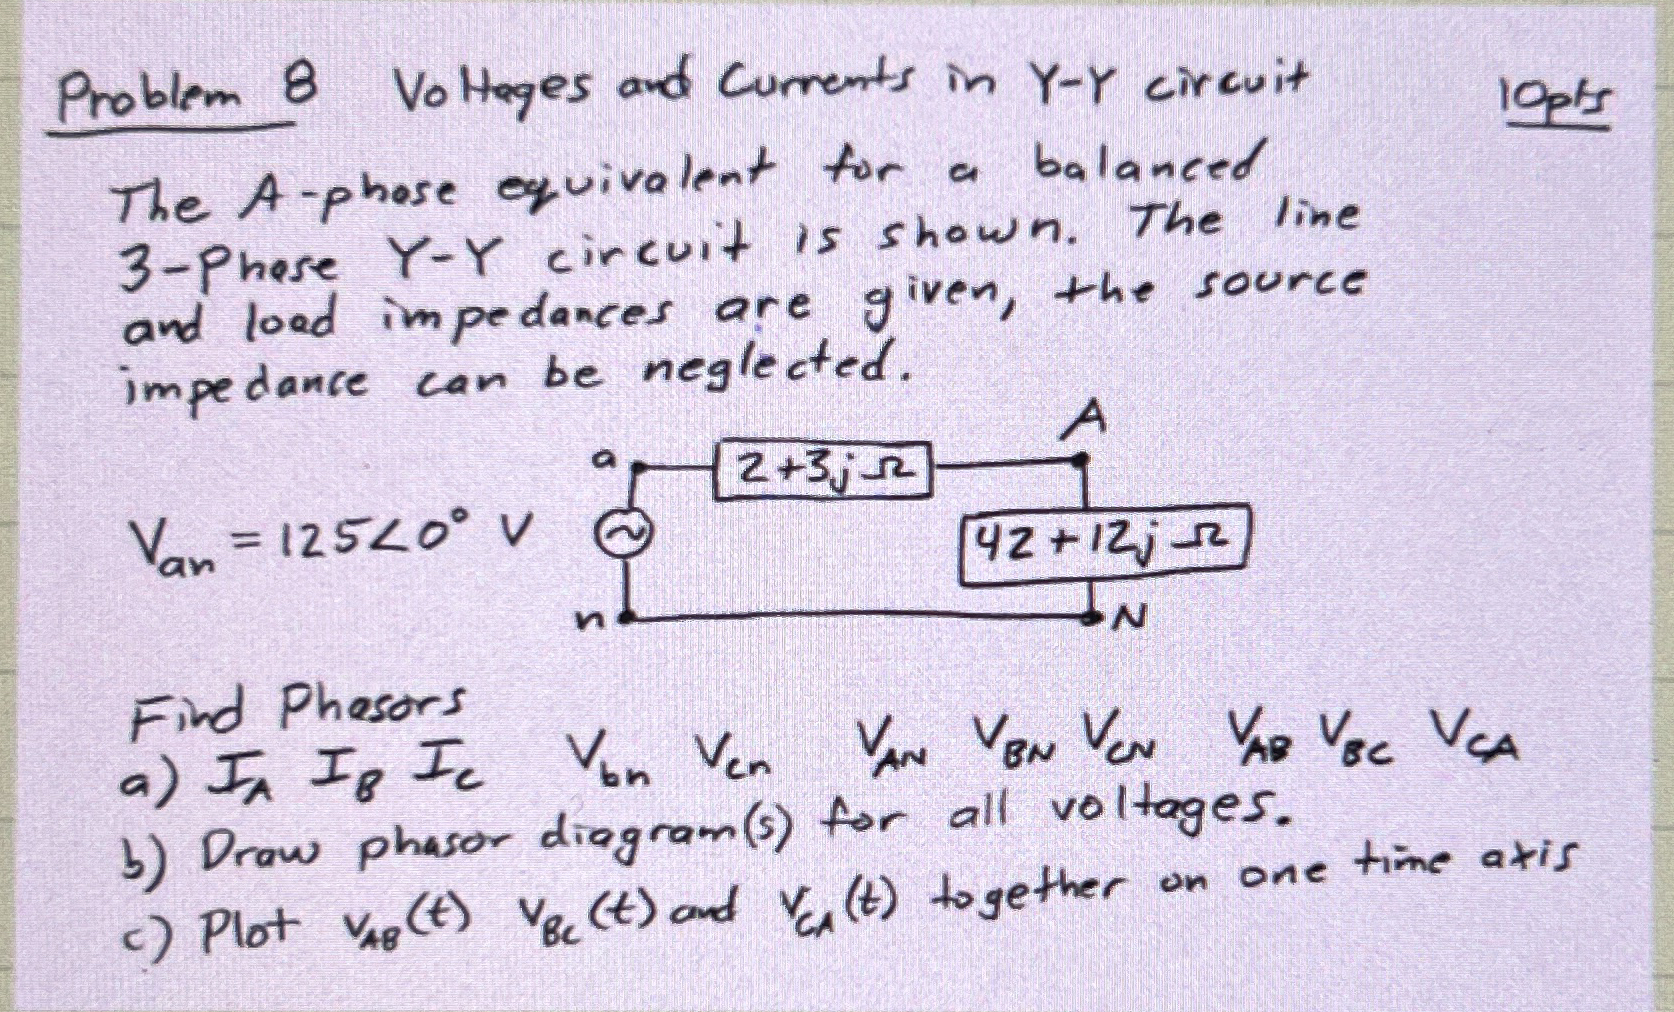 Problem 8 Voltages and Currents in Y-Y circuit 10pts
The A-phase equivalent for a balanced
3-Phase Y-Y circuit is shown. The line
and load impedances are given, the source
impedance can be neglected.
A
a 2+3j Ω
Van = 125∠0° V 42+12j Ω
n N
Find Phasors
a) IA IB IC Vbn Vcn VAN VBN VCN VAB VBC VCA
b) Draw phasor diagram(s) for all voltages.
c) Plot vAB(t) vBC(t) and vCA(t) together on one time axis